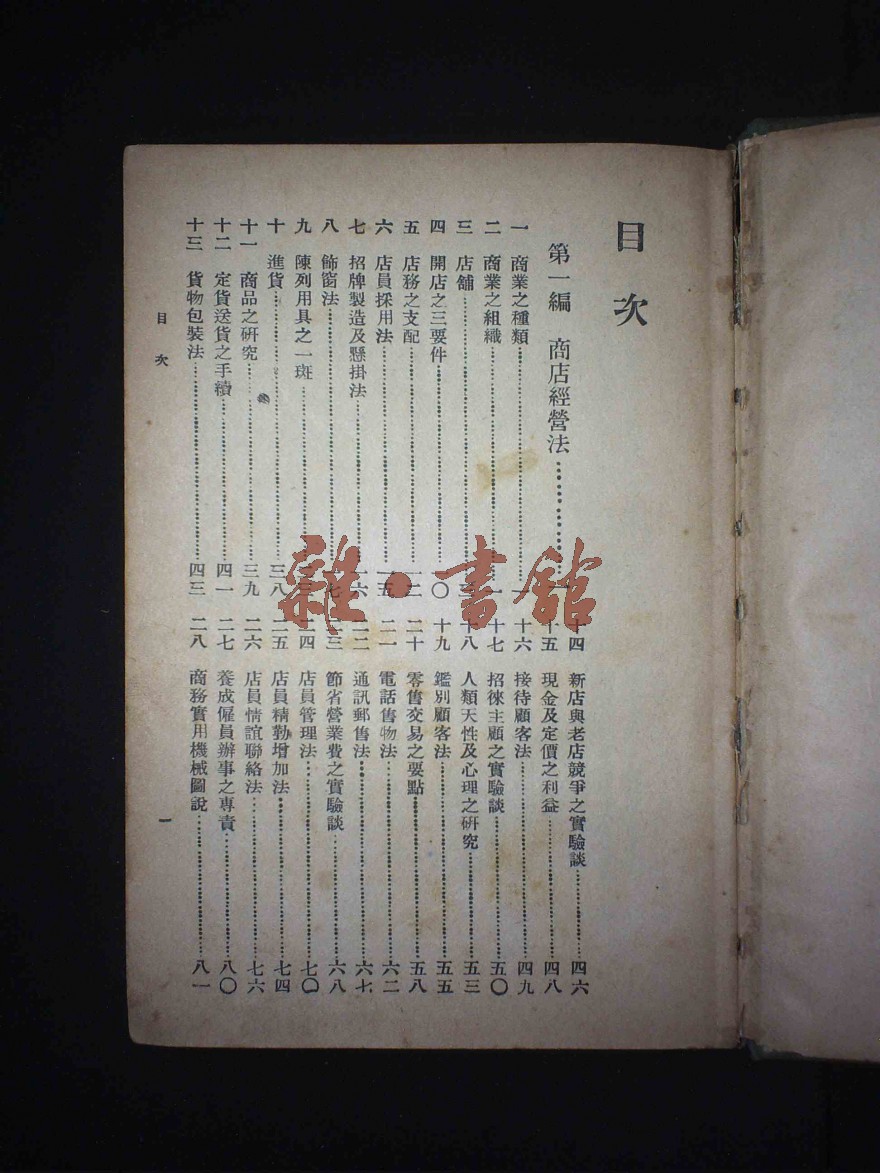 目次
第一編 商店經營法
一 商業之種類 一
二 商業之組織 一
三 店舖
四 開店之三要件 一〇
五 店務之支配 一二
六 店員採用法 一五
七 招牌製造及懸掛法 一六
八 飾窗法 一七
九 陳列用具之一斑
十 進貨 三八
十一 商品之研究 三九
十二 定貨送貨之手續 四一
十三 貨物包裝法 四三
十四 新店與老店競爭之實驗談 四六
十五 現金及定價之利益 四八
十六 接待顧客法 四九
十七 招徠主顧之實驗談 五〇
十八 人類天性及心理之研究 五三
十九 鑑別顧客法 五五
二十 零售交易之要點 五八
二一 電話售物法 六二
二二 通訊郵售法 六七
二三 節省營業費之實驗談 六八
二四 店員管理法 七〇
二五 店員精勤增加法 七四
二六 店員情誼聯絡法 七六
二七 養成僱員辦事之專責 八〇
二八 商務實用機械圖說 八一
目次
一
雜·書館